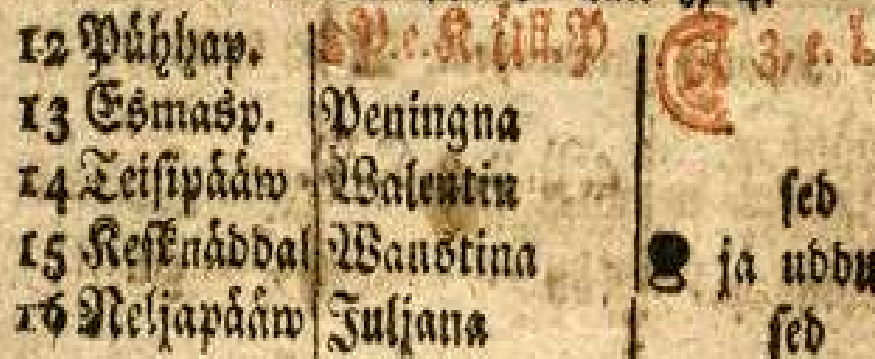 12 Pühhap. 2 P. e. K. üll. P 3. e. l.
13 Esmasp. Peningna
14 Teisipääw Walentin sed
15 Kesknäddal Waustina ja uddu
16 Neljapääw Juljana sed